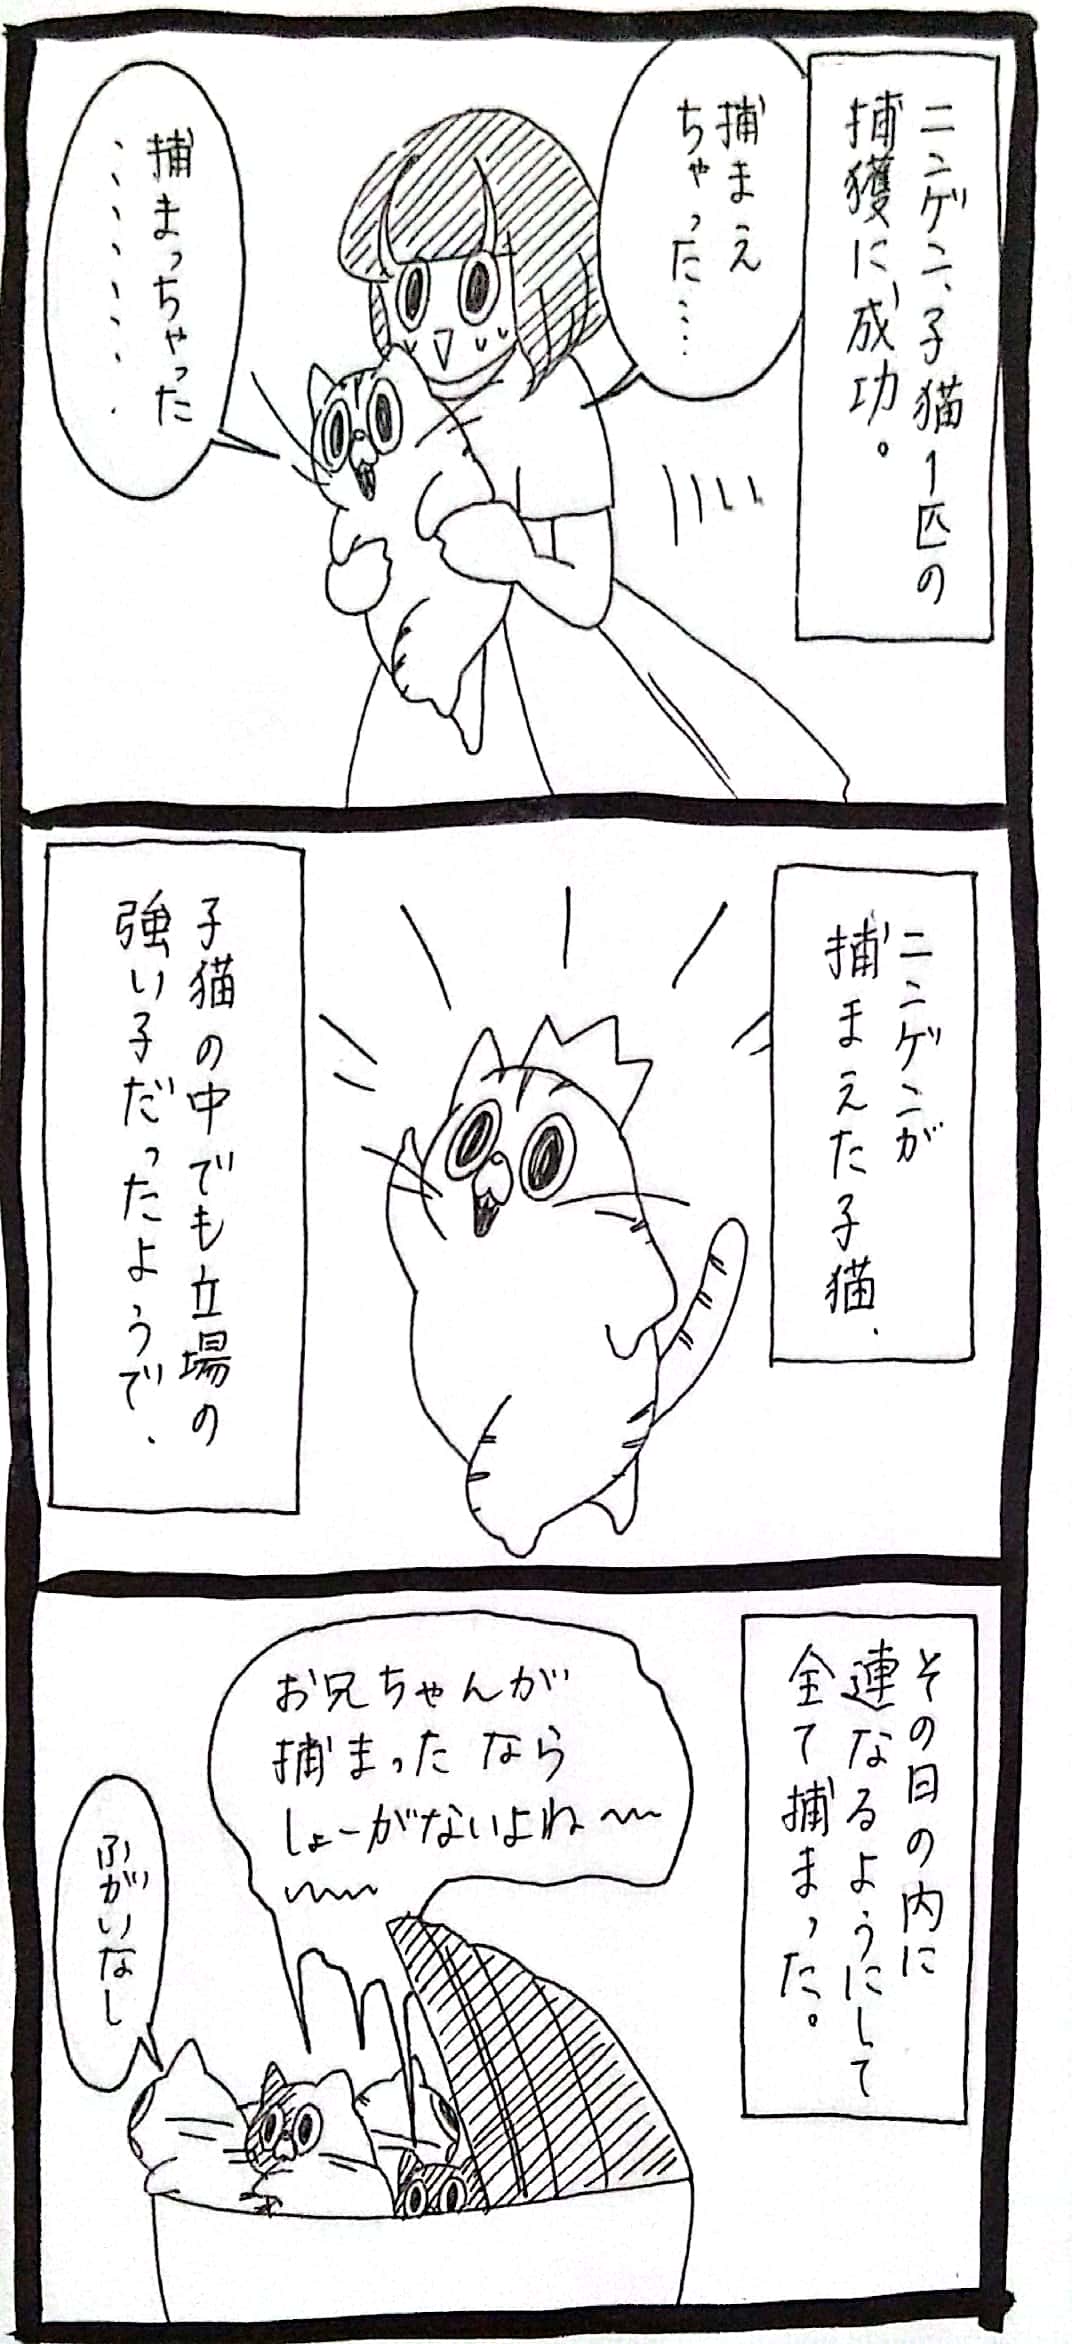 ニンゲン、子猫1匹の
捕獲に成功。
捕まえ
ちゃった…
捕まっちゃった
・・・・・・
ニンゲンが
捕まえた子猫、
子猫の中でも立場の
強い子だったようで、
その日の内に
連なるようにして
全て捕まった。
お兄ちゃんが
捕まったなら
しょーがないよね〜
〜〜
ふがいなし